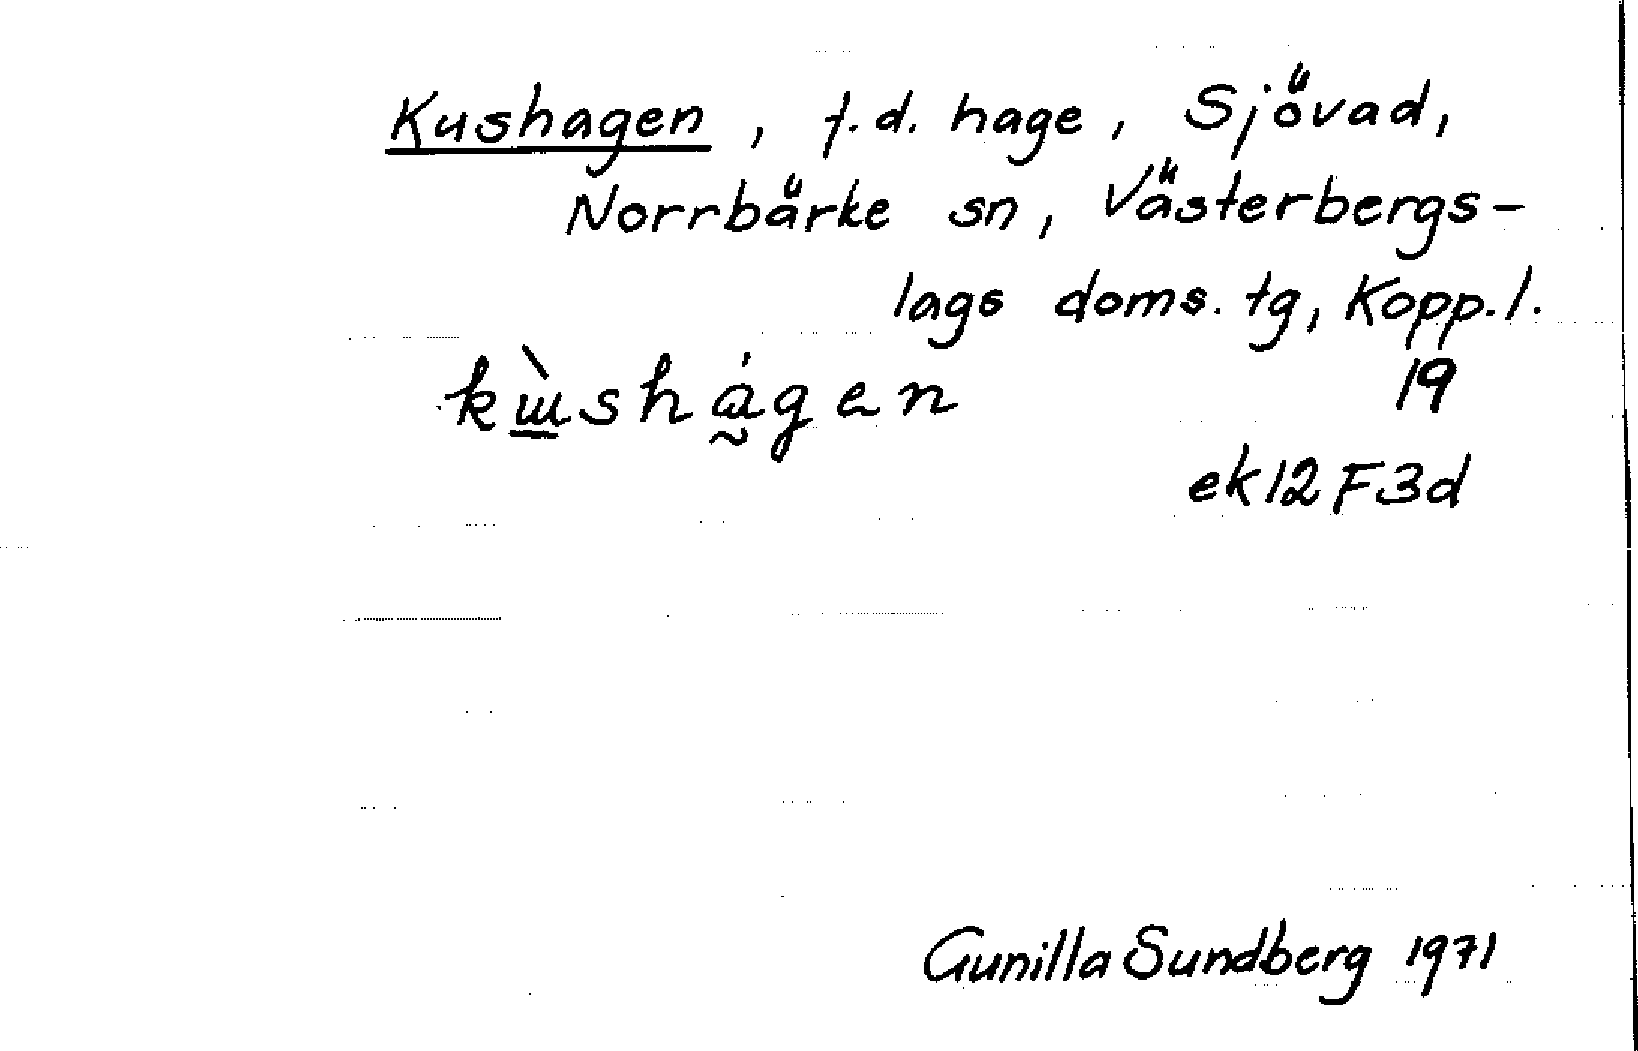 Kushagen, f.d. hage, Sjövad,
Norrbärke sn, Västerbergs-
lags doms. tg, Kopp.l.
kɯ̀shágen 19
ek 12 F 3d
Gunilla Sundberg 1971